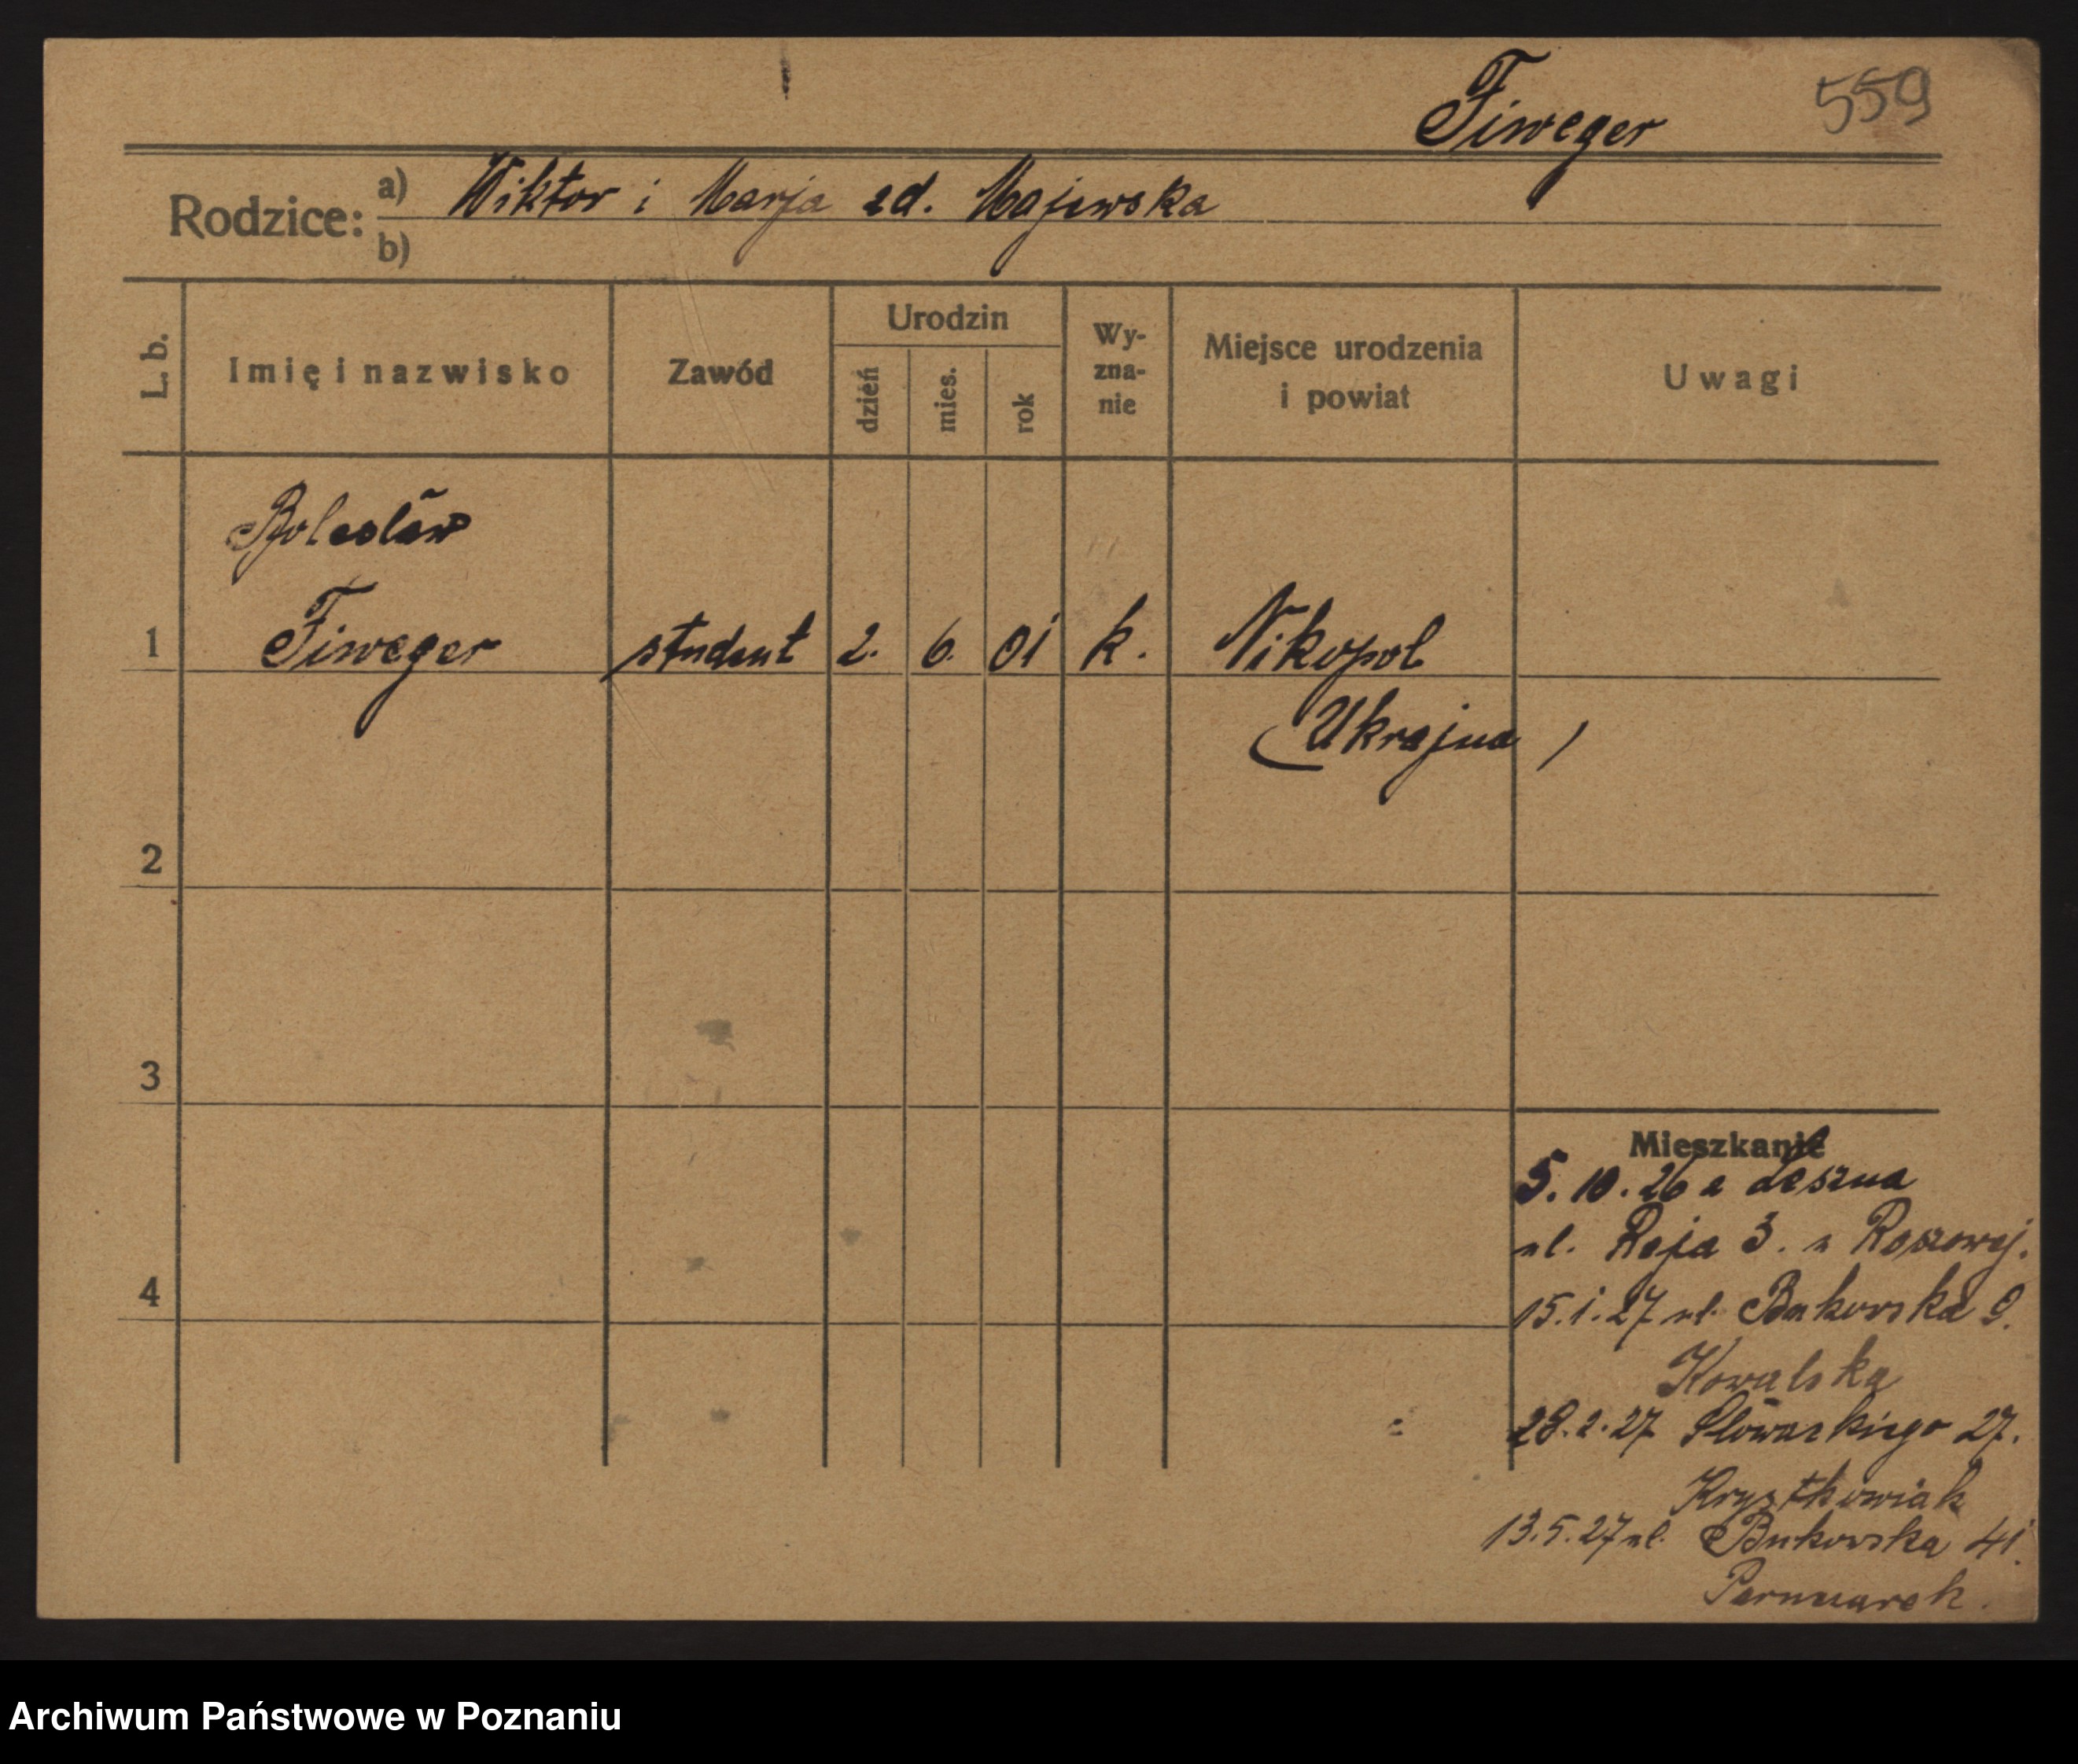 Fiweger 559
Rodzice: a) Wiktor i Marja zd. Majewska
b)
L. b. Imię i nazwisko Zawód Urodzin dzień mies. rok Wy-zna-nie Miejsce urodzenia i powiat Uwagi
Bolesław
1 Fiweger student 2. 6. 01 k. Nikopol
(Ukrajna)
2
3
Mieszkanie
5. 10. 26 z Leszna
ul. Reja 3. u Roszowej.
4
15. 1. 27 ul. Bukowska 9.
Kowalska
28. 2. 27 Słowackiego 27.
Krysztkowiak
13. 5. 27 ul. Bukowska 41.
Archiwum Państwowe w Poznaniu